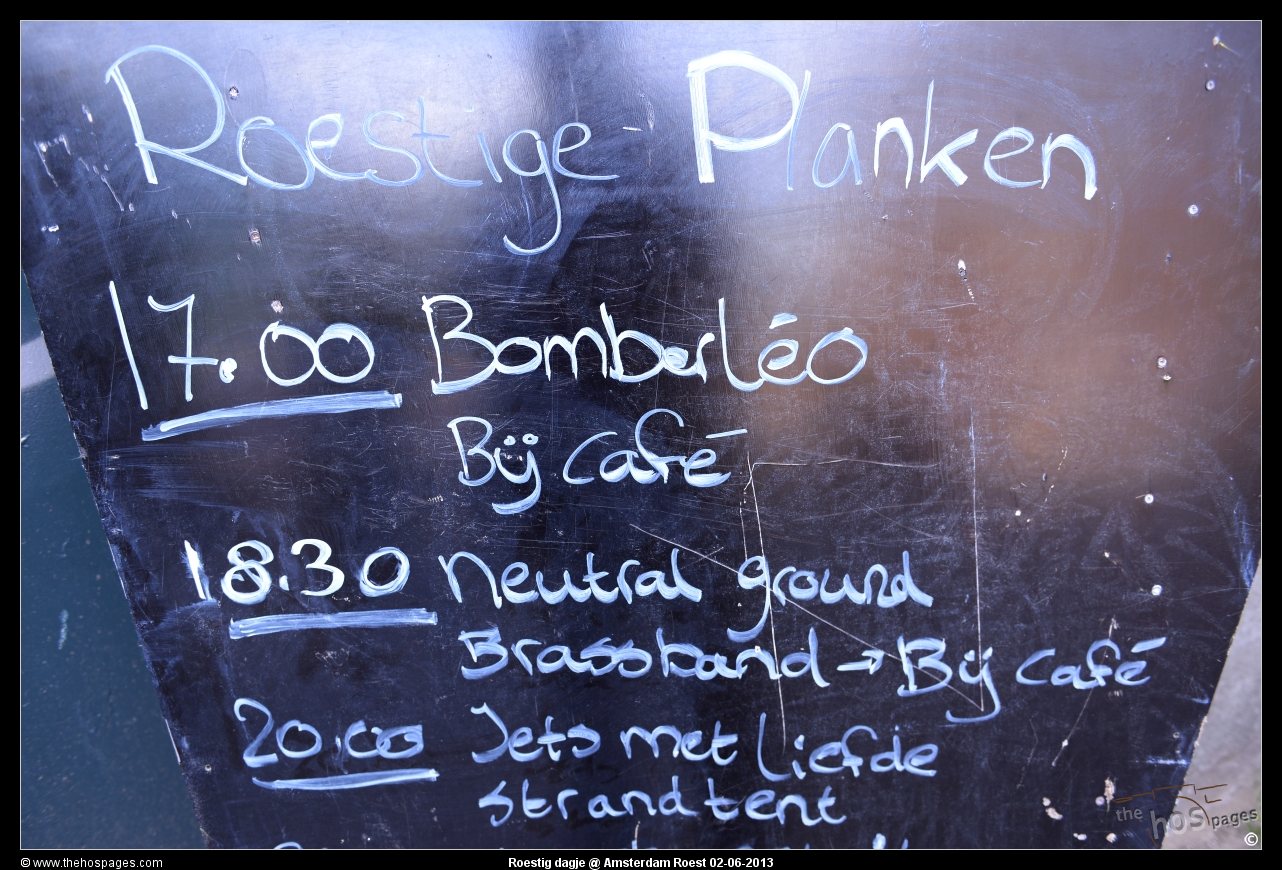 Roestige Planken
17.00 Bomberléo
Bij café
18.30 Neutral ground
Brassband → Bij café
20.00 Iets met liefde
strandtent
the hos pages
©
© www.thehospages.com
Roestig dagje @ Amsterdam Roest 02-06-2013